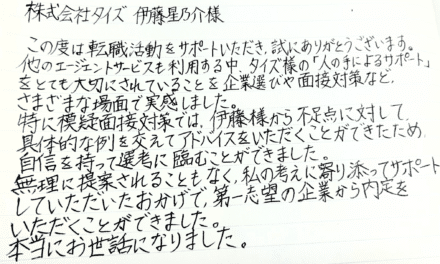 株式会社タイズ 伊藤星乃介様
この度は転職活動をサポートいただき、試にありがとうございます。
他のエージェントサービスも利用する中、タイズ様の「人の手によるサポート」
をとても大切にされていることを企業選びや面接対策など、
さまざまな場面で実感しました。
特に模疑面接対策では、伊藤様から不足点に対して、
具体的な例を交えてアドバイスをいただくことができたため、
自信を持って選考に臨むことができました。
無理に提案されることもなく、私の考えに寄り添ってサポート
していただいたおかげで、第一志望の企業から内定を
いただくことができました。
本当にお世話になりました。